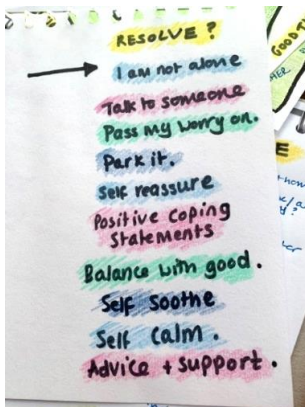 RESOLVE?
I am not alone
Talk to someone
Pass my worry on.
Park it.
Self reassure
Positive coping
statements
Balance with good.
Self Soothe
Self Calm.
Advice + support.
GOOD T